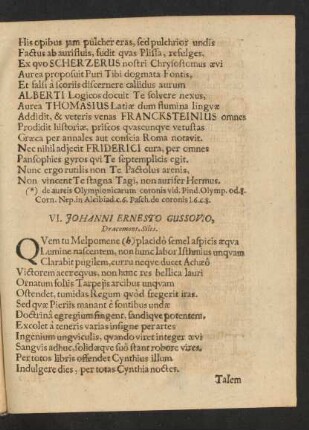 His opibus jam pulcher eras, sed pulchrior undis
Factus ab auristuis, fudit quas Plissa, refulges.
Ex quo SCHERZERUS nostri Chrysostomus ævi
Aurea proposuit Puri Tibi dogmata Fontis,
Et falsi à scoriis discernere callidus aurum
ALBERTI Logicos docuit Te solvere nexus,
Aurea THOMASIUS Latiæ dum flumina lingvæ
Addidit, & veteris venas FRANCKSTEINIUS omnes
Prodidit historiæ, priscos quæcunque vetustas
Græca per annales aut conscia Roma notavit.
Nec nihil adjecit FRIDERICI cura, per omnes
Pansophies gyros qvi Te septemplicis egit.
Nunc ergo rutilis non Te Pactolus arenis,
Non vincent Te stagna Tagi, non aurifer Hermus.
(*) de aureis Olympionicarum coronis vid. Pind. Olymp. od. 8.
Corn. Nep. in Alcibiad. c. 6. Pasch. de coronis l. 6. c. 8.
VI. JOHANNI ERNESTO GUSSOVIO,
Dracomont. Siles.
QVem tu Melpomene (b) placidô semel aspicis æqva
Lumine nascentem, non hunc labor Isthmius unqvam
Clarabit pugilem, curru neqve ducet Achæô
Victorem aereqvus, non hunc res bellica lauri
Ornatum foliis Tarpejis arcibus unqvam
Ostendet, tumidas Regum qvòd fregerit iras.
Sed qvæ Pieriis manant è fontibus undæ
Doctrinâ egregium fingent, fandiqve potentem.
Excolet à teneris varias insigne per artes
Ingenium ungviculis, quando viret integer ævi
Sangvis adhuc, solidæqve suô stant robore vires.
Per totos libris offendet Cynthius illum
Indulgere dies, per totas Cynthia noctes.
Talem